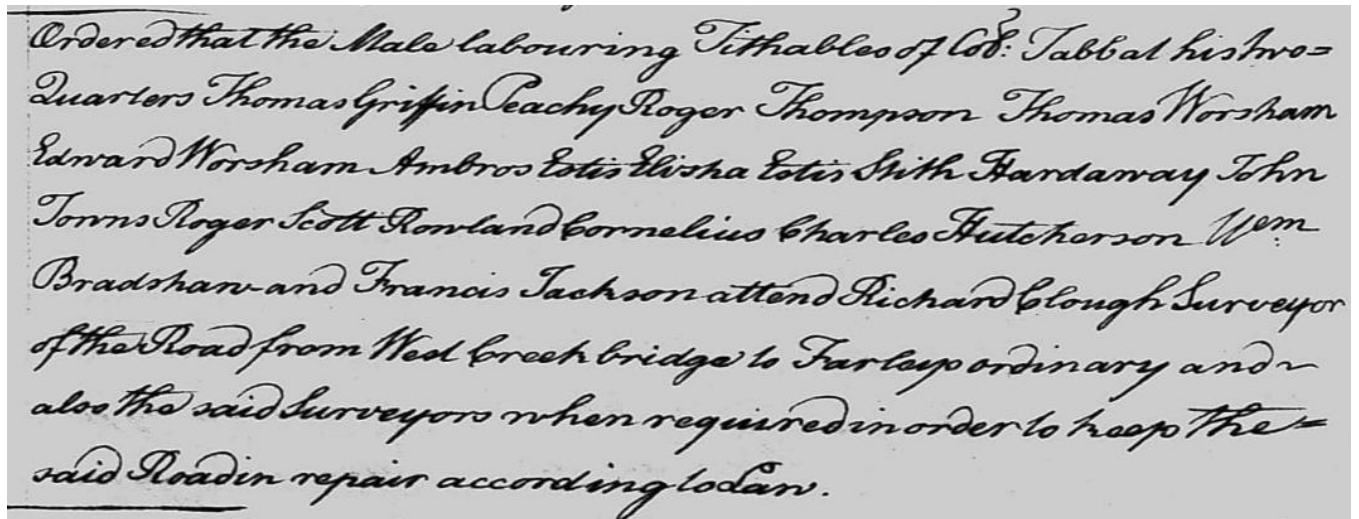 Ordered that the Male labouring Tithables of Col: Tabb at his two=
Quarters Thomas Griffin Peachy Roger Thompson Thomas Worsham
Edward Worsham Ambros Estis Elisha Estis Stith Hardaway John
Towns Roger Scott Rowland Cornelius Charles Hutcherson Wm
Bradshaw and Francis Jackson attend Richard Clough Surveyor
of the Road from West Creek bridge to Farleys ordinary and
also the said Surveyors when required in order to keep the=
said Road in repair according to Law.